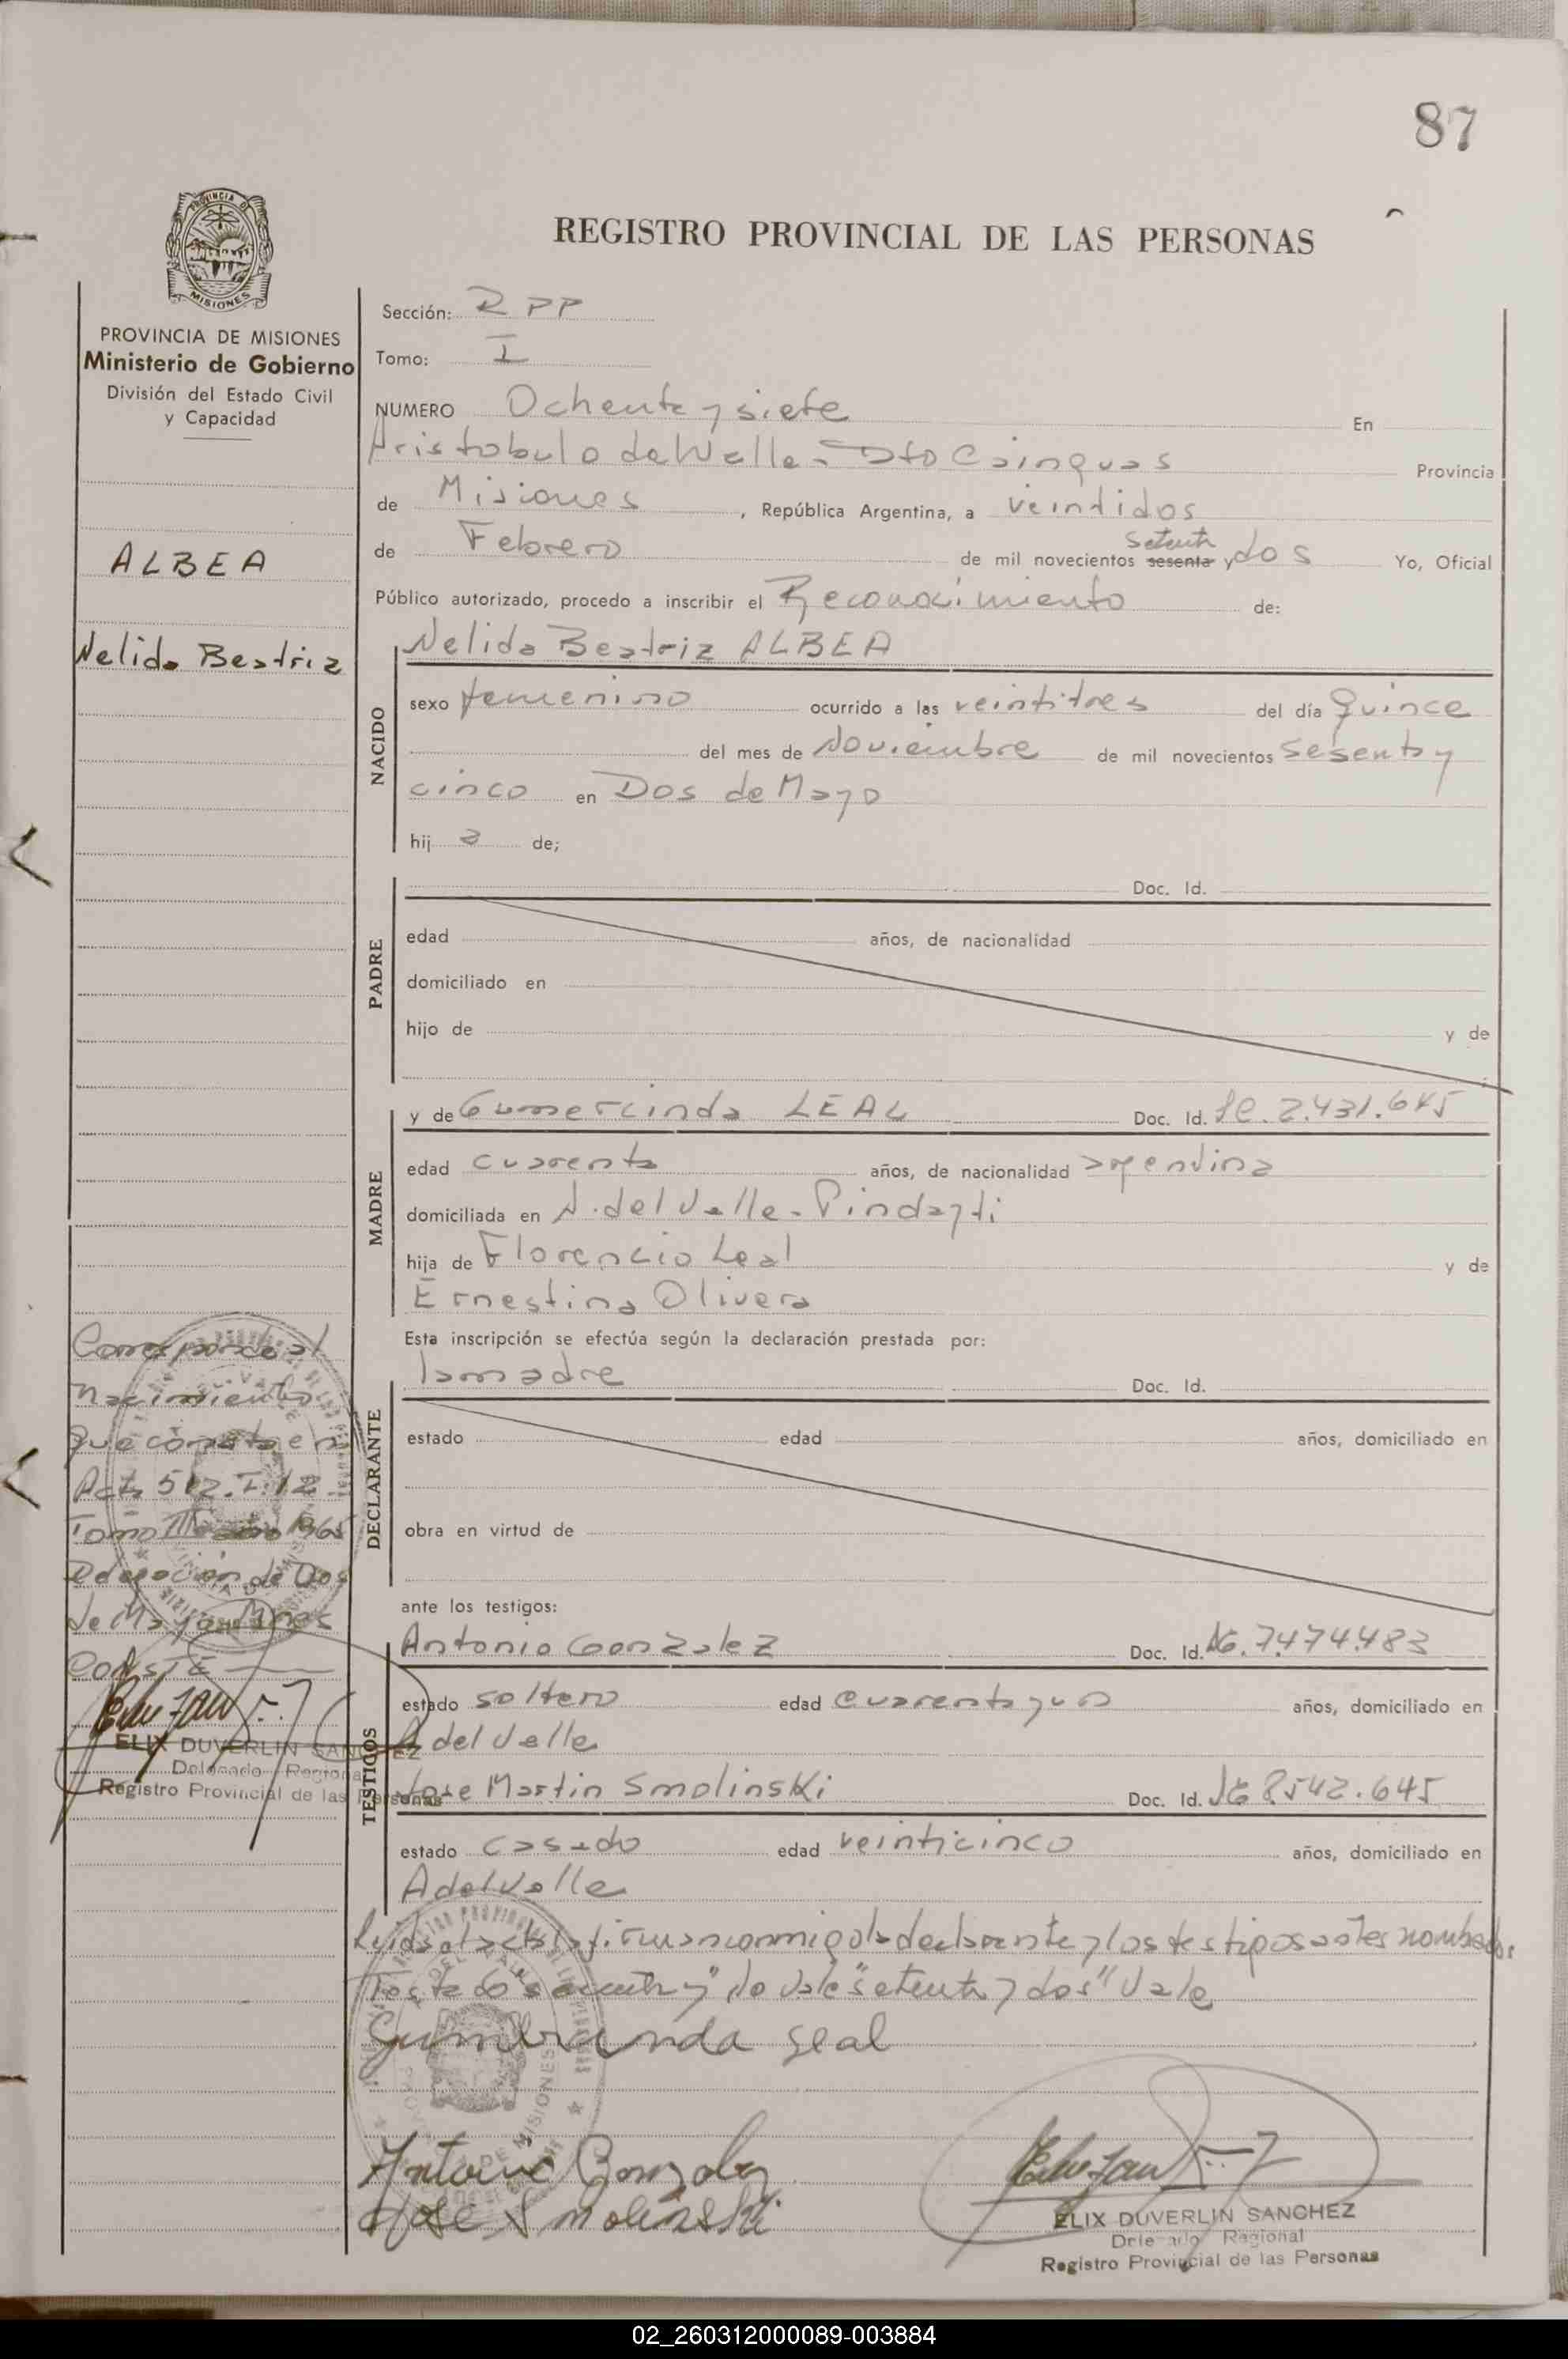 87
REGISTRO PROVINCIAL DE LAS PERSONAS
PROVINCIA DE MISIONES
Ministerio de Gobierno
División del Estado Civil
y Capacidad
ALBEA
Nelida Beatriz
Sección: R PP
Tomo: I
NUMERO Ochenta y siete En
Aristobulo del Valle - Dto Cainguas Provincia
de Misiones, República Argentina, a veintidos
de Febrero de mil novecientos sesenta setenta y dos Yo, Oficial
Público autorizado, procedo a inscribir el Reconocimiento de:
NACIDO
Nelida Beatriz ALBEA
sexo femenino ocurrido a las veintitres del día quince
del mes de Noviembre de mil novecientos sesenta y
cinco en Dos de Mayo
hij a de;
PADRE
Doc. Id.
edad años, de nacionalidad
domiciliado en
hijo de y de
MADRE
y de Gumercinda LEAL Doc. Id. LC. 2.431.645
edad cuarenta años, de nacionalidad argentina
domiciliada en A. del Valle - Pindayti
hija de Florencio Leal y de
Ernestina Olivera
Esta inscripción se efectúa según la declaración prestada por:
DECLARANTE
la madre Doc. Id.
estado edad años, domiciliado en
obra en virtud de
ante los testigos:
TESTIGOS
Antonio Gonzalez Doc. Id. 7.474.483
estado soltero edad cuarenta y un años, domiciliado en
A del Valle
Jose Martin Smolinski Doc. Id. 8.542.645
estado casado edad veinticinco años, domiciliado en
A del Valle
Leida el acta la firman conmigo la declarante y los testigos antes nombrados
Testado "sesenta y" no vale "setenta y dos" Vale
Gumercinda Leal
Antonio Gonzalez
Jose Smolinski
ELIX DUVERLIN SANCHEZ
Delegado Regional
Registro Provincial de las Personas
Corresponde al
nacimiento
que consta en
Acta 512. T. 12
Tomo III año 1965
Delegación de Dos
de Mayo Mnes
CONSTE
ELIX DUVERLIN SANCHEZ
Delegado Regional
Registro Provincial de las Personas
02_260312000089-003884